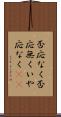 否応なく否
応無くいや
応なく